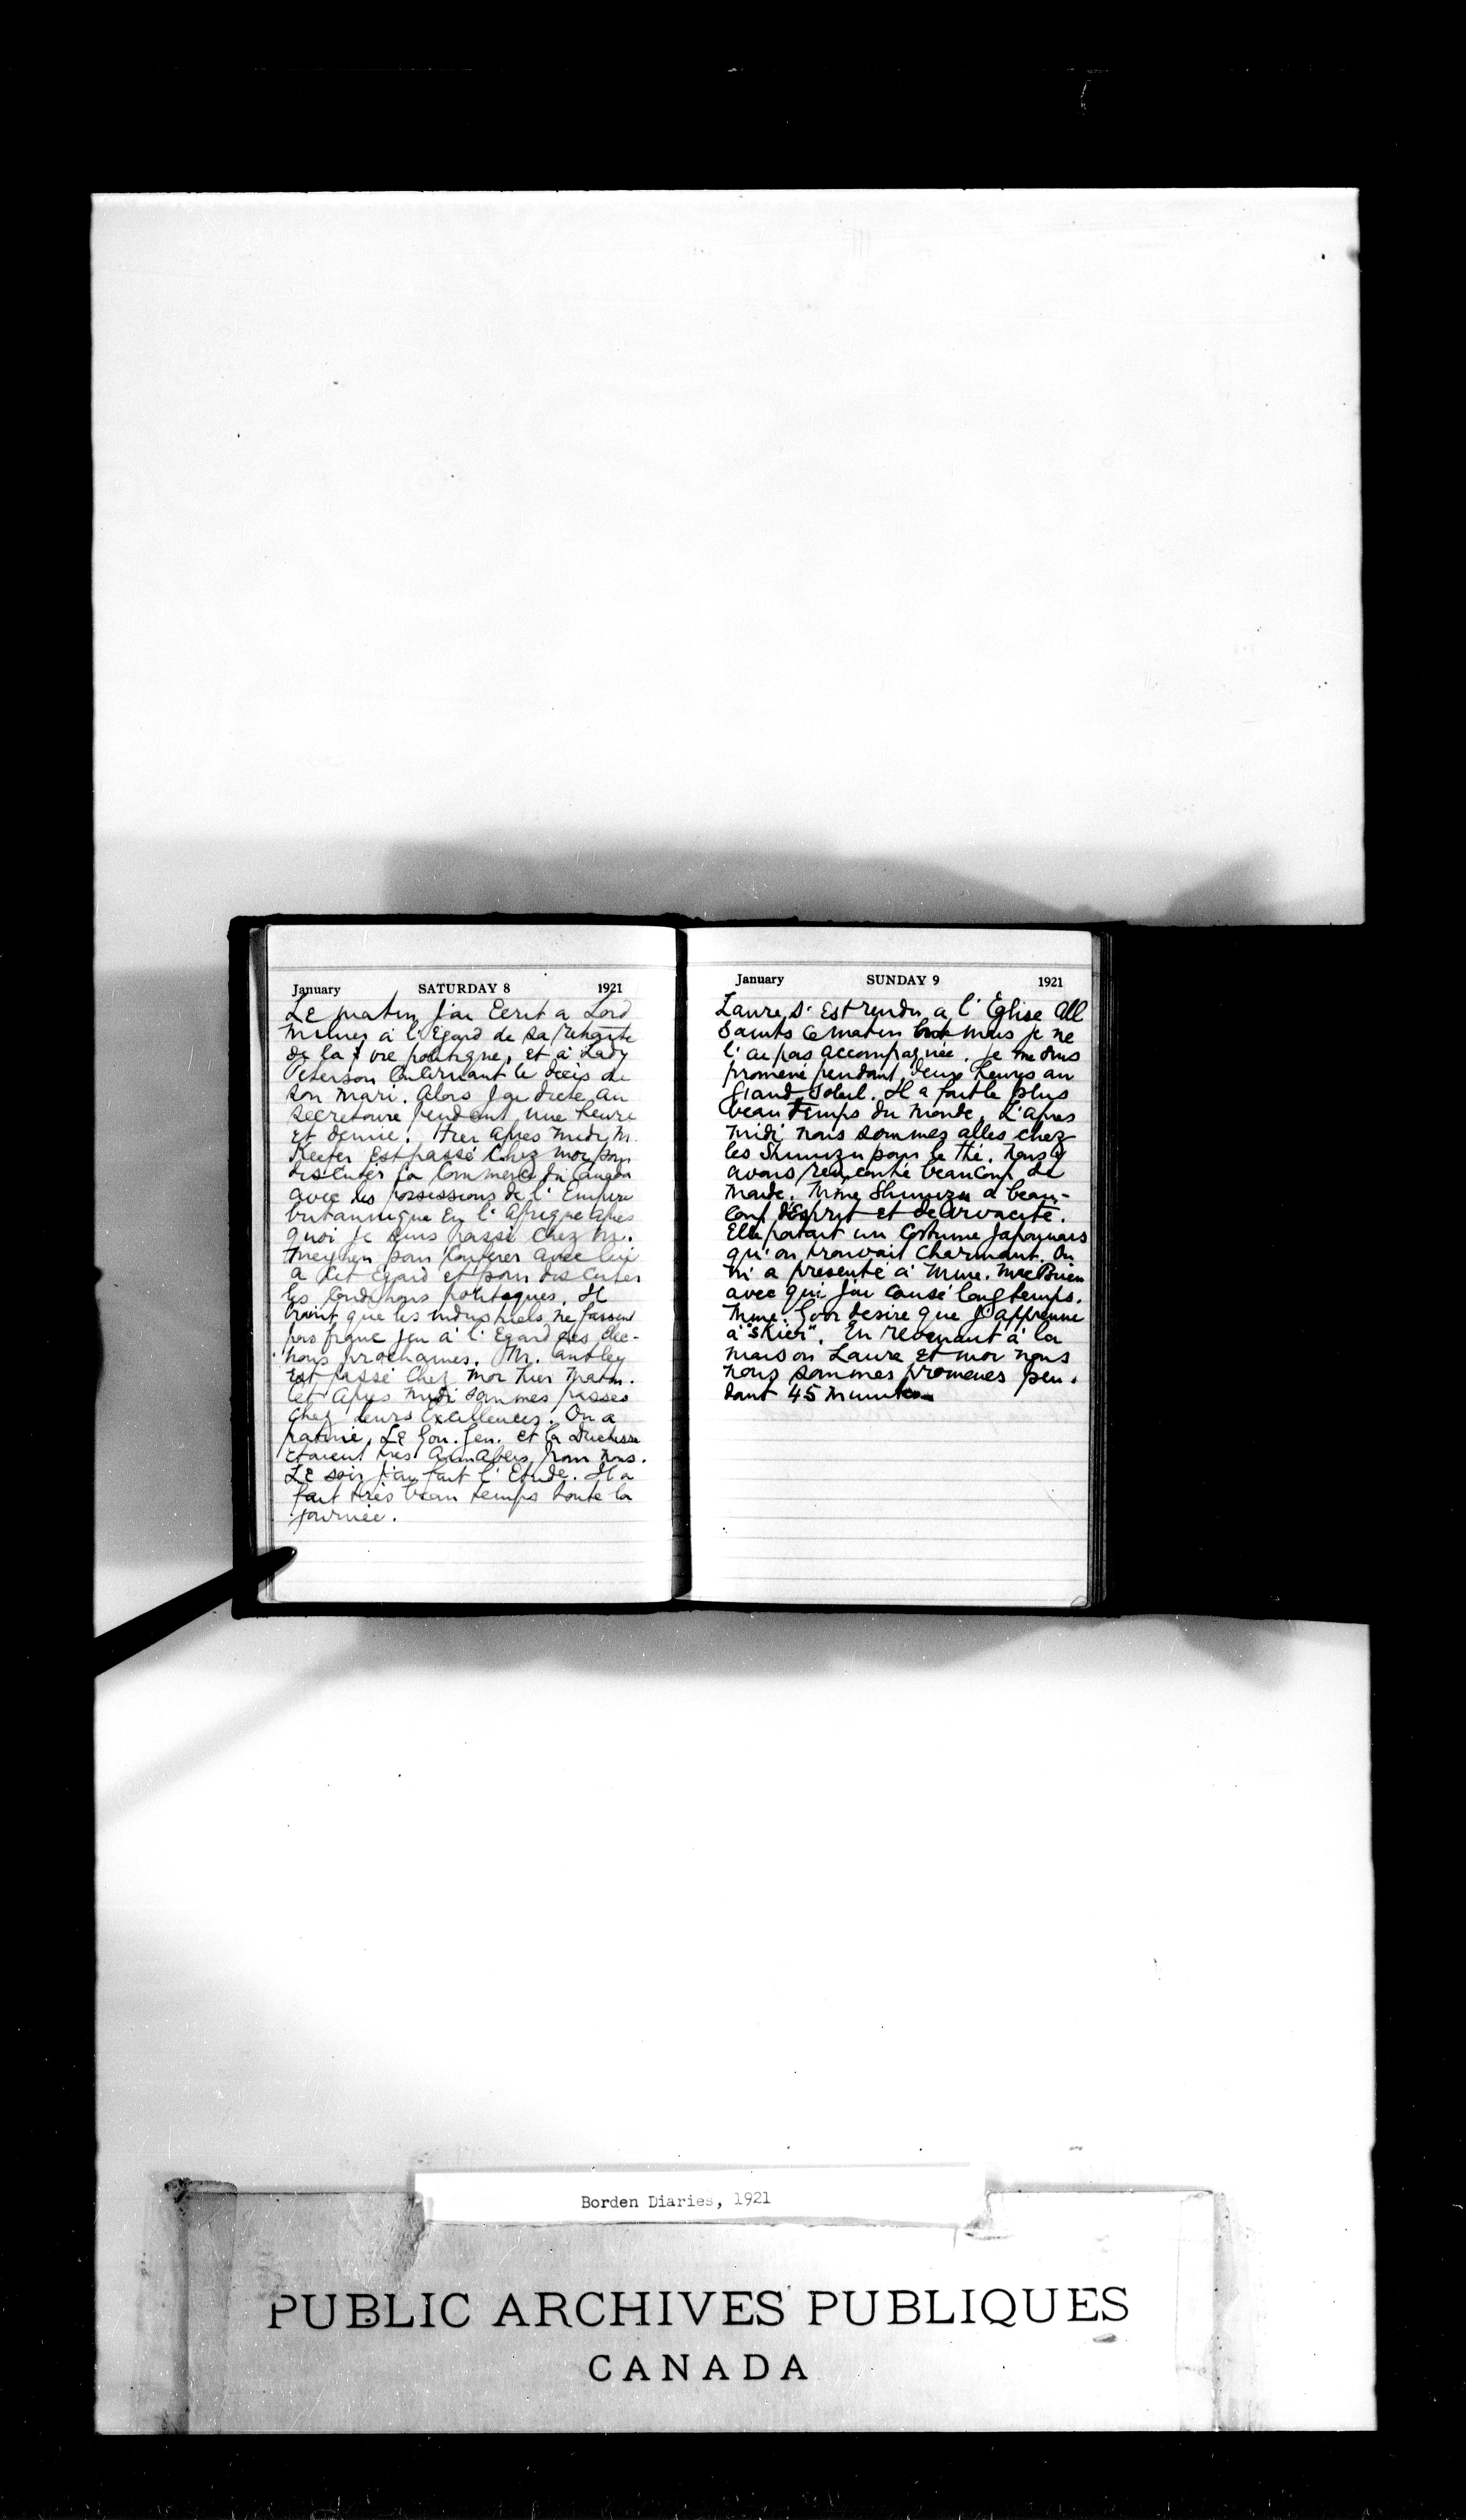 January SATURDAY 8 1921
Le matin j'ai ecrit a Lord
Milner à l'Egard de sa retraite
de la vie politique, et à Lady
Peterson Concernant le decis de
son mari. Alors j'ai dicte au
secretaire pendant une heure
et demie. Hier apres midi M.
Keefer est passé chez moi pour
discuter la Commerce du Canada
avec les possessions de l'Empire
britannique En l'Afrique apres
quoi je suis passé chez M.
Meighen pour Conferer avec lui
a cet Egard et pour discuter
les Conditions politiques. Il
craint que les industriels ne fassent
pas franc jeu à l'Egard des Elec-
tions prochaines. M. Cantley
est passé chez moi hier matin.
Cet apres midi sommes passes
chez leurs Excellences. On a
patiné. Le Gou. Gen. et la Duchesse
Etaient tres aimables pour nous.
Le soir j'ai fait l'Etude. Il a
fait très beau temps toute la
journée.
January SUNDAY 9 1921
Laura s'est rendu a l'Eglise All
Saints ce matin but mais je ne
l'ai pas accompagnée. Je me suis
promené pendant deux heures au
grand soleil. Il a fait le plus
beau temps du monde. L'apres
midi nous sommes alles chez
les Shimizu pour le thé. Nous y
avons rencontré beaucoup de
monde. Mme Shimizu a beau-
coup d'Esprit et de vivacité.
Elle portait un Costume Japonnais
qu'on trouvait charmant. On
m'a presenté à Mme. MacBrien
avec qui j'ai causé longtemps.
Mme. Goor desire que j'apprenne
à "skier". En revenant à la
maison Laura et moi nous
nous sommes promenés pen-
dant 45 minutes
Borden Diaries, 1921
PUBLIC ARCHIVES PUBLIQUES
CANADA